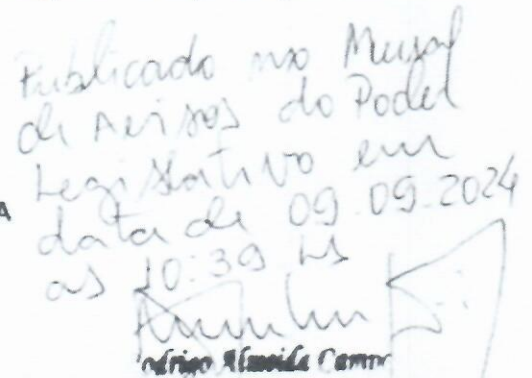 Publicado no Mural
de Avisos do Poder
Legislativo em
A
data de 09.09.2024
as 10:39 hs
Rodrigo Almeida